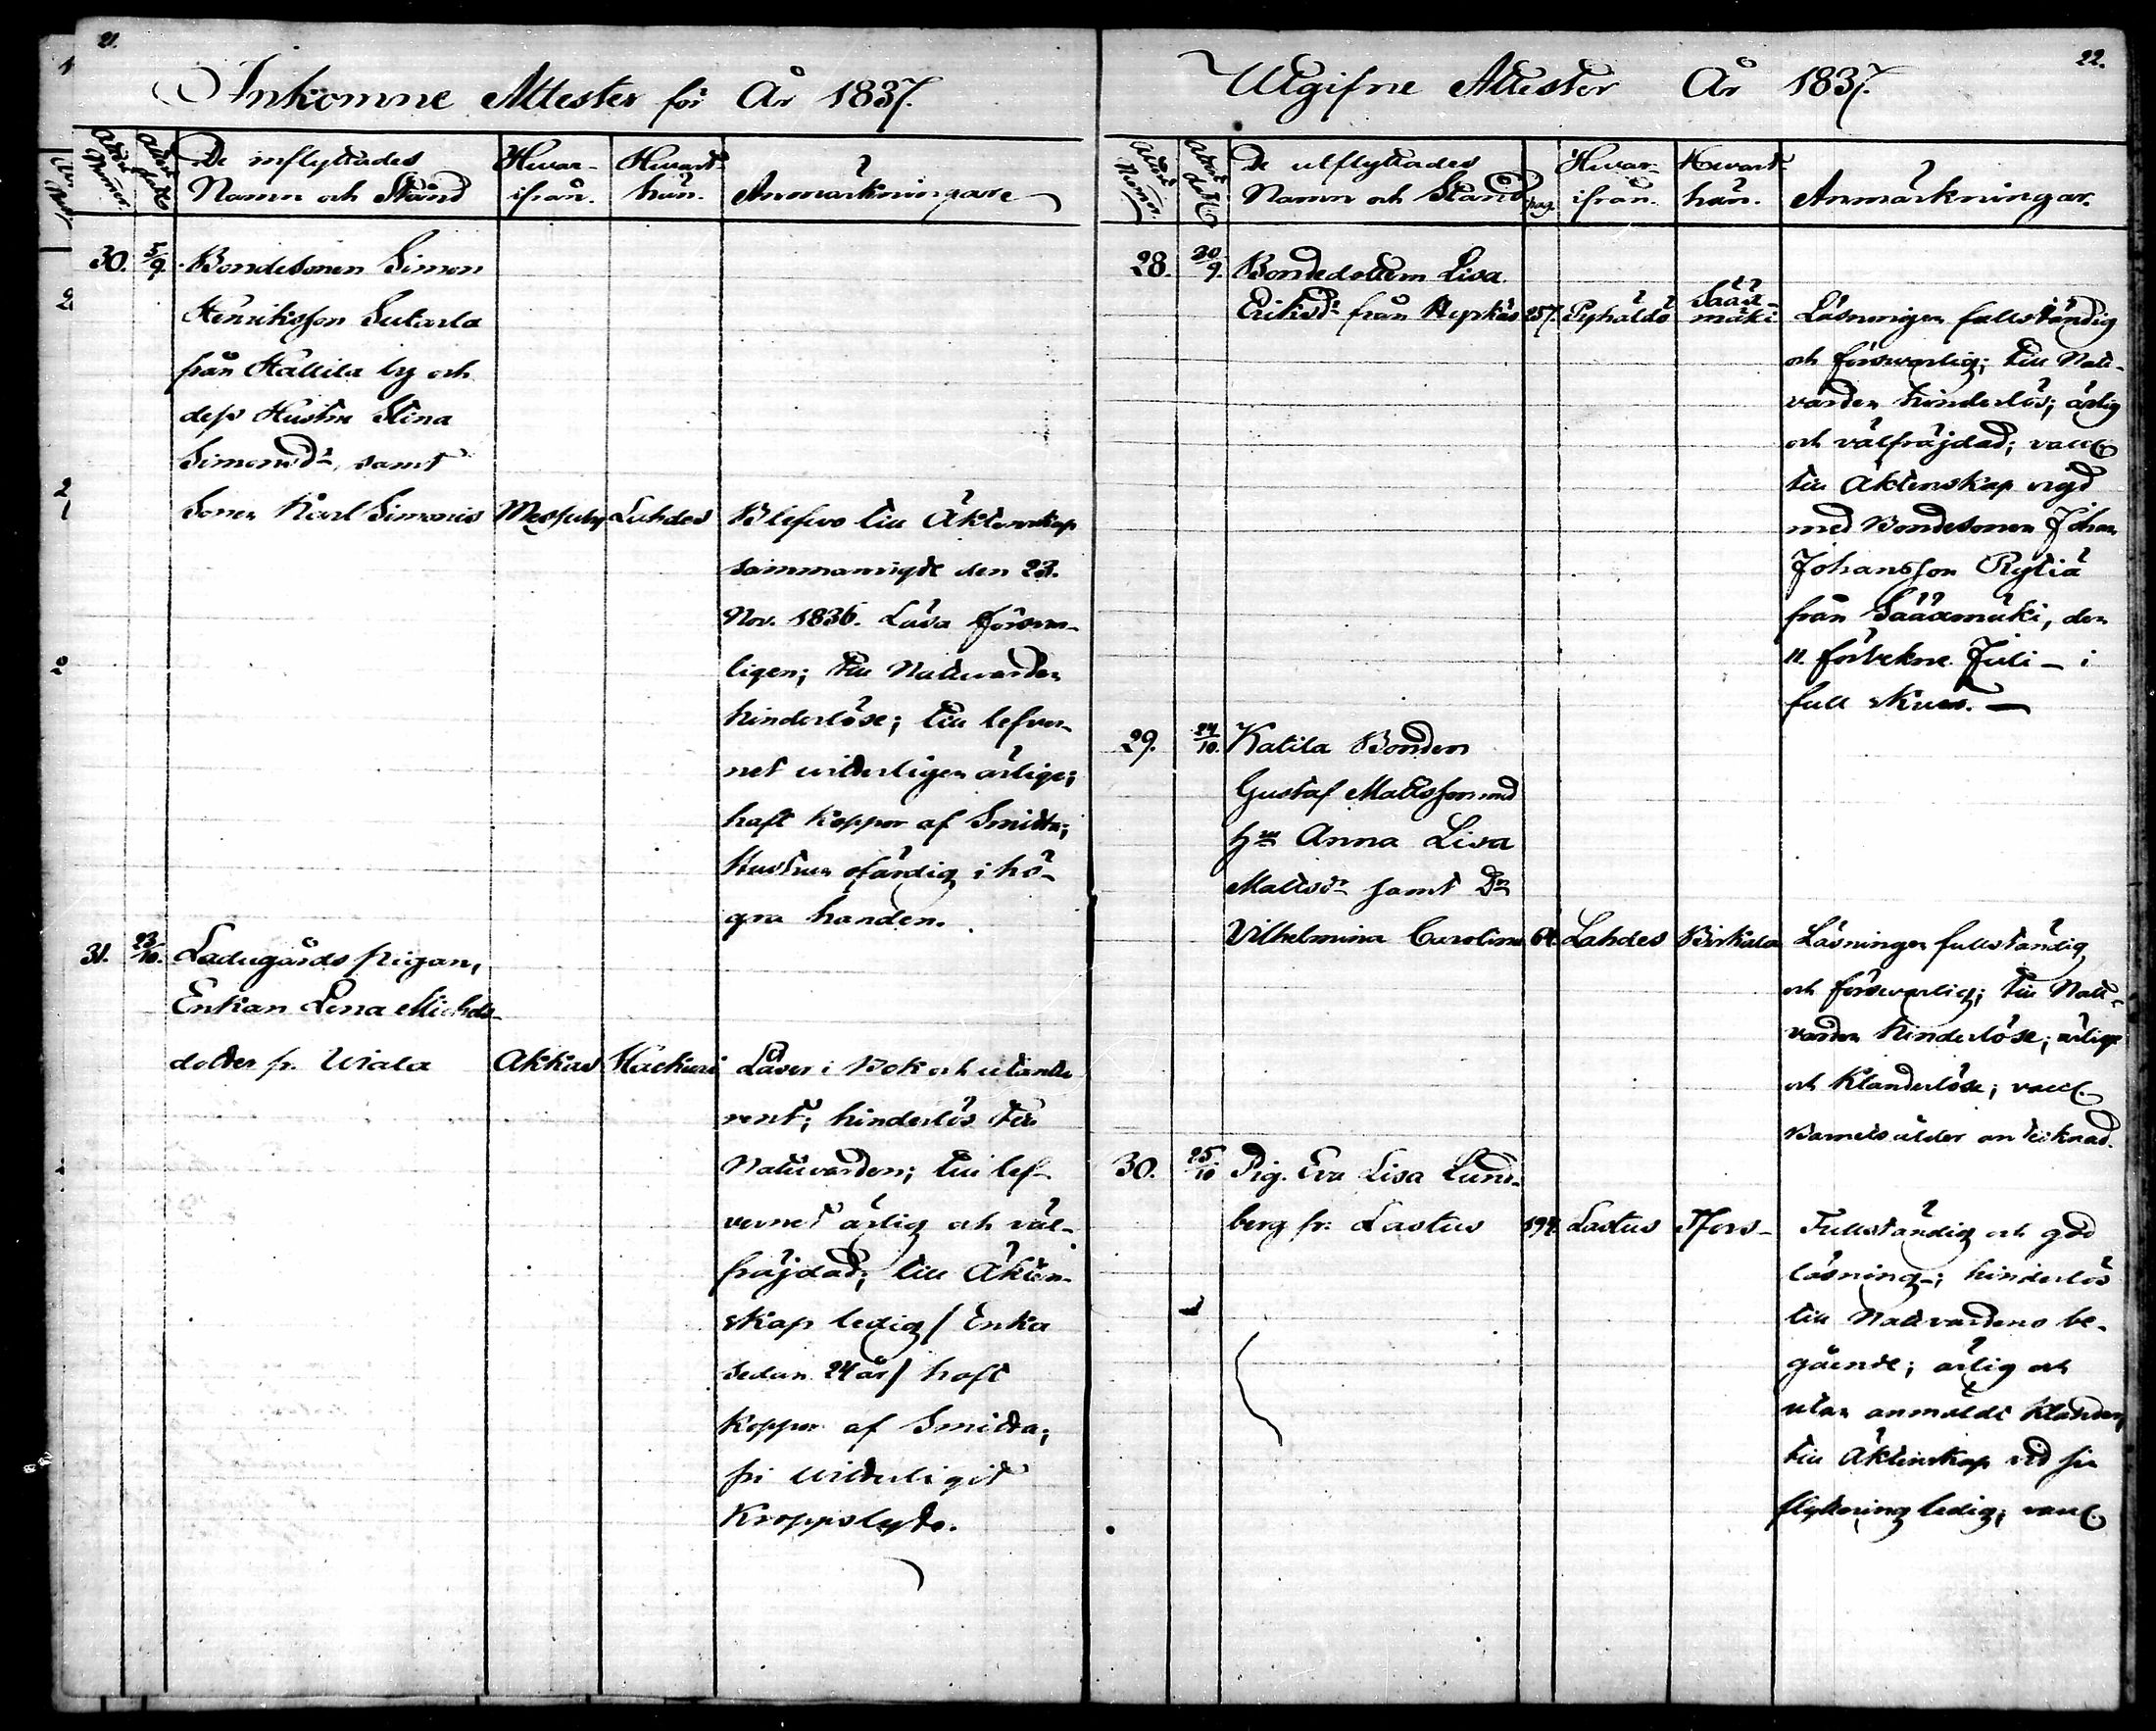 21.
Inkomne Attester för År 1837.
Attest Numer.
Attest dato
De inflyttades
Namn och Stånd
Hvar-
ifrån.
Hvart-
hän.
Anmärkningar
30. 5/9. Bondesonen Simon
Henriksson Sutarla
från Hallila by och
dess Hustru Stina
Simonsdr, samt
Sonen Karl Simonis Messuby Lahdes Blefvo till Äktenskap
sammanvigde den 23.
Nov. 1836. Läsa försvar-
ligen; till Nattvarden
hinderlöse; till lefver-
net vitterligen ärlige;
haft koppor af Smitta;
Hustrun ofärdig i hö-
gra handen.
31. 23/10. Ladugårds pigan,
Enkan Lena Michels-
dotter fr. Wiala Akkas Hackuri Läser i Bok och utantill
rent; hinderlös till
Nattvarden; till lef-
vernet ärlig och väl-
fräjdad; till Äkten-
skap ledig / Enka
sedan 24 år / haft
koppor af Smitta;
fri witterligit
Kroppslyte.
22.
Utgifne Attester År 1837.
Attest Numr.
Attest dato
De utflyttades
Namn och Stånd
pag.
Hvar-
ifrån.
Hvart-
hän.
Anmärkningar.
28. 20/9. Bondedottern Lisa
Eriksdr från Nyrkäs 257. Pyhäldö Sääx-
mäki Läsningen fullständig
och försvarlig; till Natt-
varden hinderlös; ärlig
och välfräjdad; vacc.
till Äktenskap vigd
med Bondesonen Johan
Johansson Rytiä
från Sääxmäki, den
11. förtekne Juli – i
full skrud. —
29. 24/10. Katila Bonden
Gustaf Mattsson med
hu Anna Lisa
Mattsdr samt Dr
Vilhelmina Carolina 64. Lahdes Birkala Läsningen fullständig
och försvarlig; till Natt-
varden hinderlöse; ärlige
och klanderlöse; vacc.
Barnets ålder antecknad.
30. 25/10 Pig. Eva Lisa Lund-
berg fr: Lastus 194. Lastus Tfors- Fullständig och god
läsning; hinderlös
till Nattvardens be-
gående; ärlig och
utan anmäldt klander;
till Äktenskap vid sin
flyttning ledig; vacc.